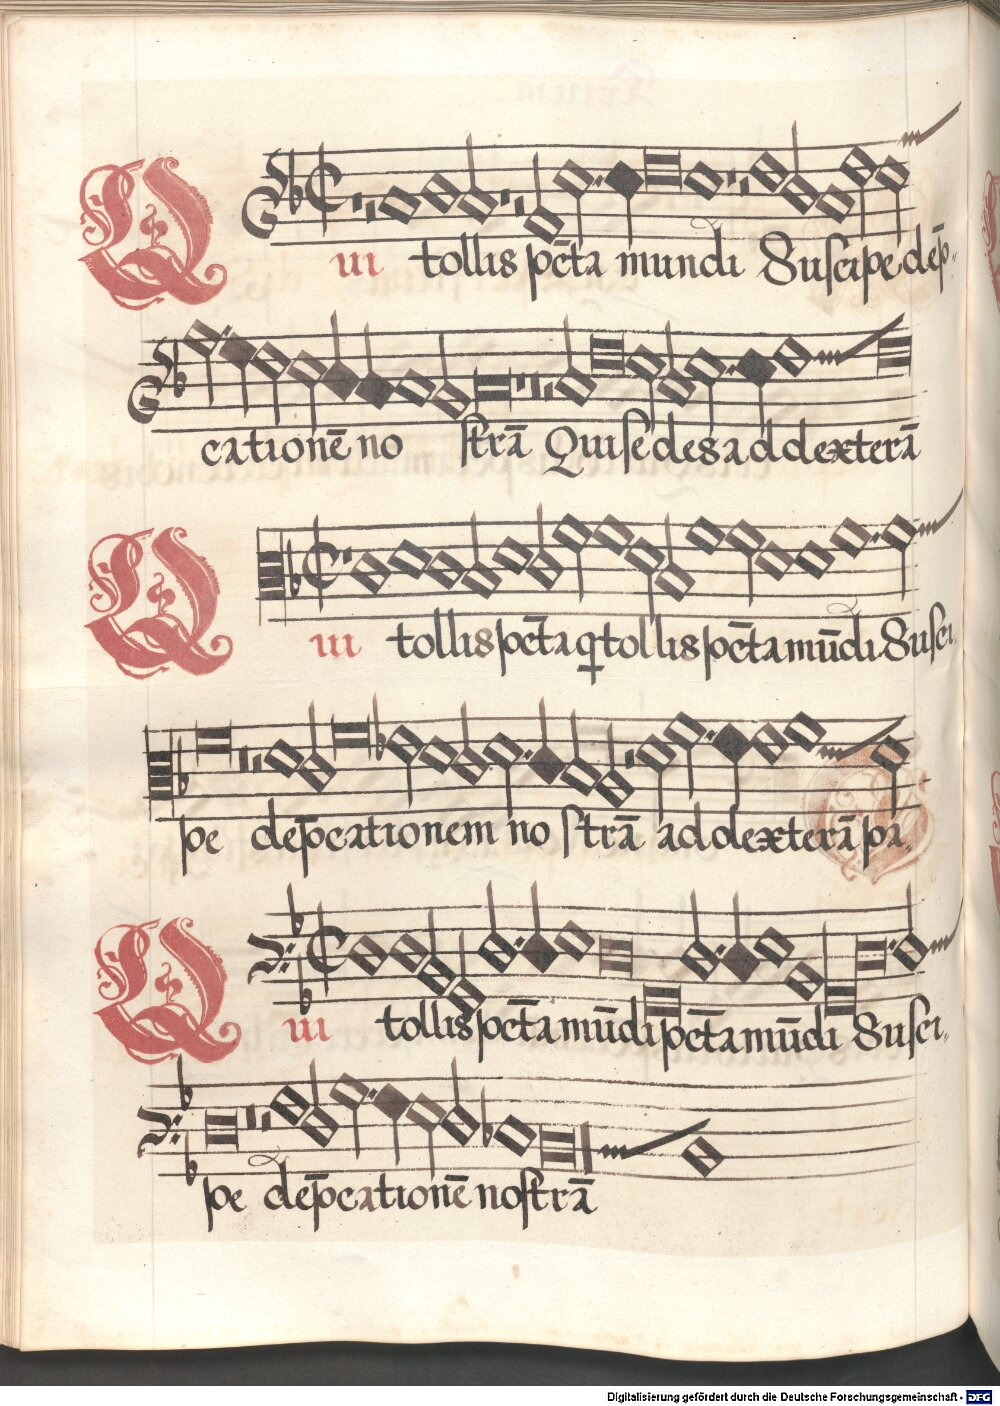 Qui tollis pc̄ta mundi Suscipe dep̄-
cationē no strā Qui sedes ad dexterā
Qui tollis pc̄ta q tollis pc̄ta mūdi Susci-
pe dep̄cationem no strā ad dexterā pa-
Qui tollis pc̄ta mūdi pc̄ta mūdi Susci-
pe dep̄cationē nostrā
Digitalisierung gefördert durch die Deutsche Forschungsgemeinschaft - DFG